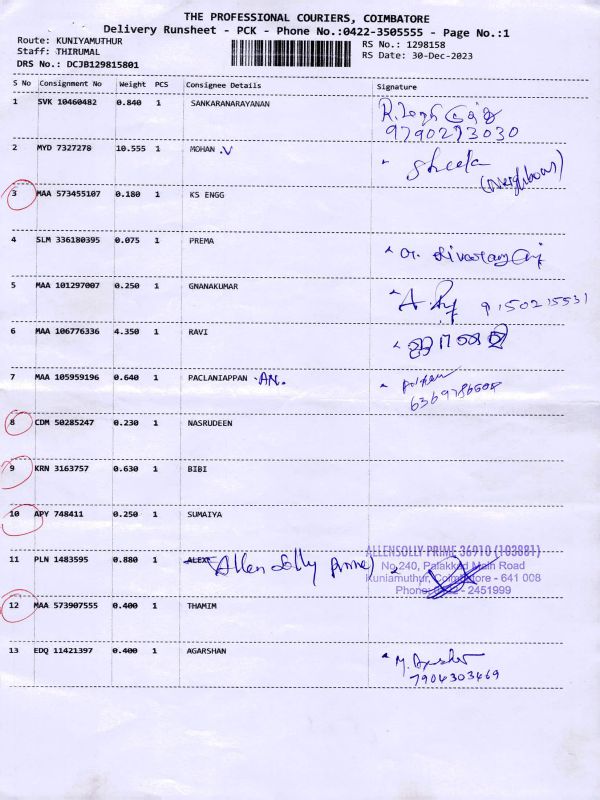 THE PROFESSIONAL COURIERS, COIMBATORE
Delivery Runsheet - PCK - Phone No.:0422-3505555 - Page No.:1
Route: KUNIYAMUTHUR
Staff: THIRUMAL
RS No.: 1298158
RS Date: 30-Dec-2023
DRS No.: DCJB129815801
S No Consignment No Weight PCS Consignee Details Signature
1 SVK 10460482 0.840 1 SANKARANARAYANAN
9790273030
2 MYD 7327278 10.555 1 MOHAN .V Sheela
(Neighbour)
3 MAA 573455107 0.180 1 KS ENGG
4 SLM 336180395 0.075 1 PREMA
5 MAA 101297007 0.250 1 GNANAKUMAR 9150215531
6 MAA 106776336 4.350 1 RAVI
7 MAA 105959196 0.640 1 PACLANIAPPAN .AN.
8 CDM 50285247 0.230 1 NASRUDEEN
9 KRN 3163757 0.630 1 BIBI
10 APY 748411 0.250 1 SUMAIYA
11 PLN 1483595 0.880 1 ALEXE Allen Solly prime)
ALLENSOLLY PRIME 36910 (103881)
No.240, Palakkad Main Road
Kuniamuthur, Coimbatore - 641 008
Phone: 0422 - 2451999
12 MAA 573907555 0.400 1 THAMIM
13 EDQ 11421397 0.400 1 AGARSHAN
7904303469